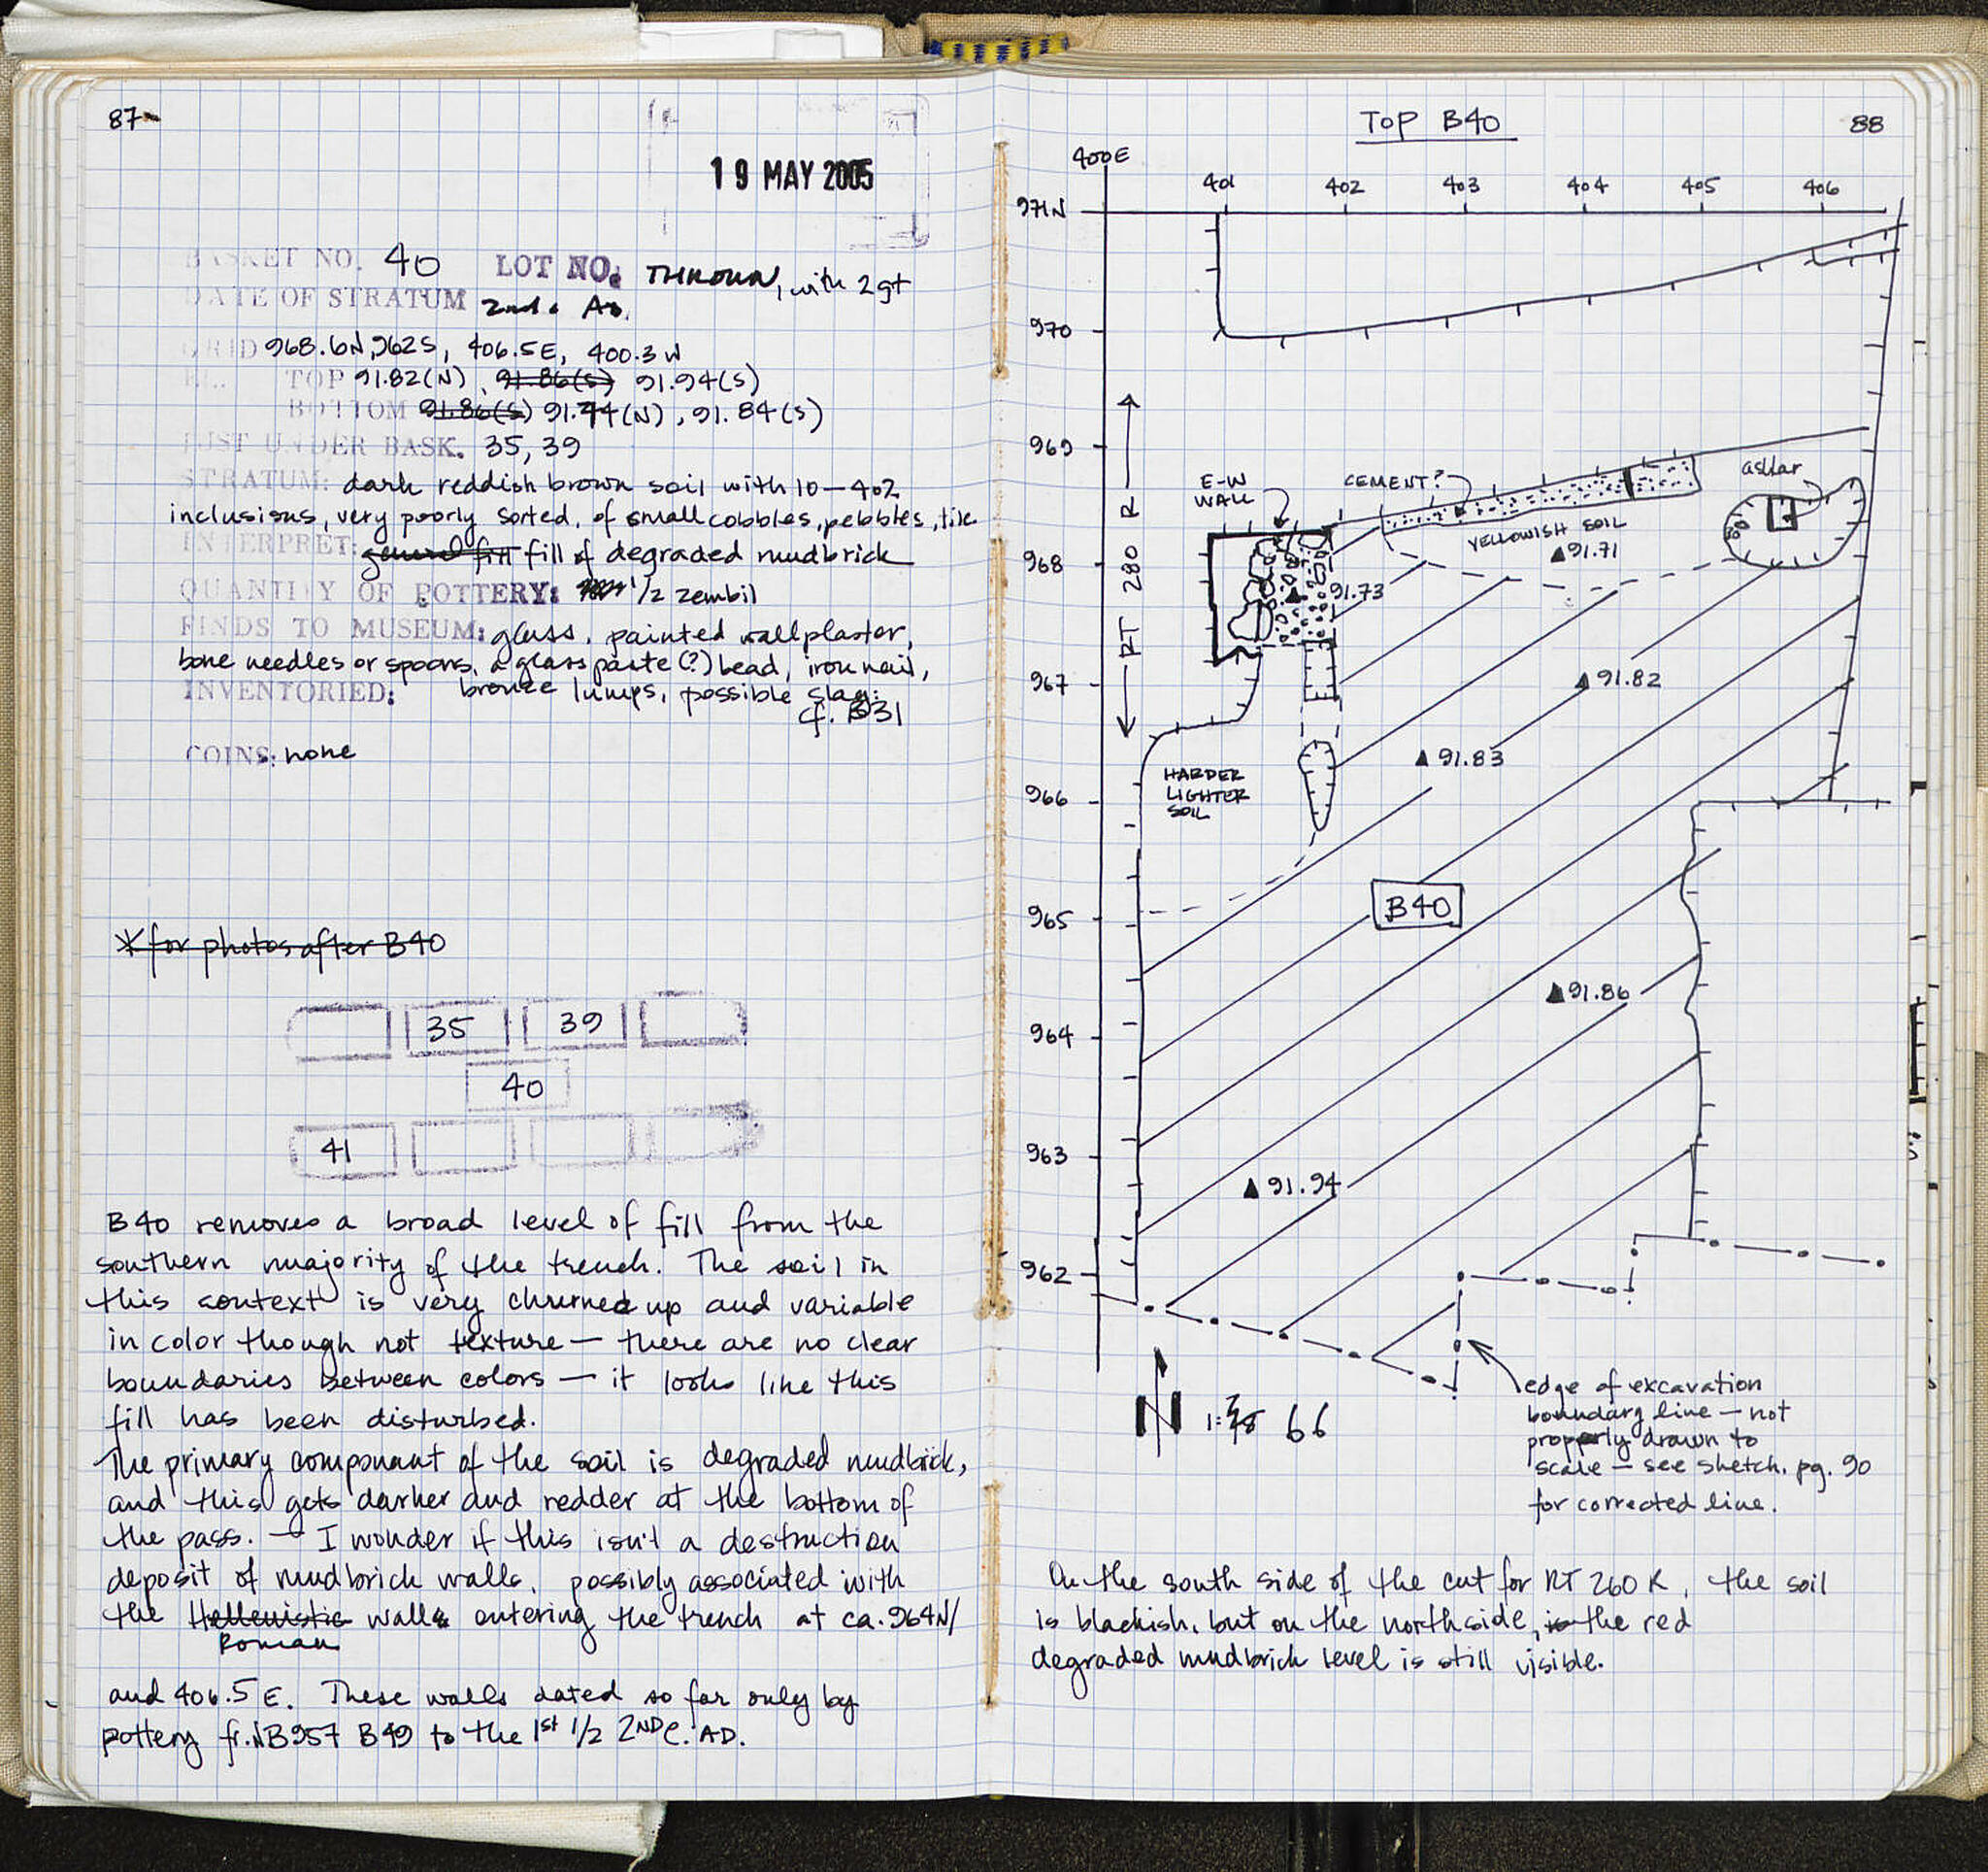 87
19 MAY 2005
BASKET NO. 40 LOT NO. THROWN, with 2gt
DATE OF STRATUM 2nd c AD.
GRID 968.6N, 962S, 406.5E, 400.3W
EL. TOP 91.82(N), 91.86(S) 91.94(S)
BOTTOM 91.86(S) 91.74(N), 91.84(S)
JUST UNDER BASK. 35, 39
STRATUM: dark reddish brown soil with 10-40%
inclusions, very poorly sorted, of small cobbles, pebbles, tile
INTERPRET: general fill fill of degraded mudbrick
QUANTITY OF POTTERY: 1/2 zembil
FINDS TO MUSEUM: glass, painted wall plaster,
bone needles or spoons, a glass paste (?) bead, iron nail,
INVENTORIED: bronze lumps, possible slag:
cf. B31
COINS: none
*for photos after B40
35 39
40
41
B40 removes a broad level of fill from the
southern majority of the trench. The soil in
this context is very churned up and variable
in color though not texture — there are no clear
boundaries between colors — it looks like this
fill has been disturbed.
The primary component of the soil is degraded mudbrick,
and this gets darker and redder at the bottom of
the pass. — I wonder if this isn't a destruction
deposit of mudbrick walls, possibly associated with
the Hellenistic walls entering the trench at ca. 964N/
Roman
and 406.5 E. These walls dated so far only by
pottery fr. NB957 B49 to the 1st 1/2 2ND C. AD.
TOP B40
88
400E
401 402 403 404 405 406
971N
970
969
968
967
966
965
964
963
962
RT 280 R
E-W
WALL
CEMENT?
ashlar
YELLOWISH SOIL
91.71
91.73
91.82
91.83
HARDER
LIGHTER
SOIL
B40
91.86
91.94
N 66
edge of excavation
boundary line — not
properly drawn to
scale — see sketch, pg. 90
for corrected line.
On the south side of the cut for RT 260 K, the soil
is blackish, but on the north side, is the red
degraded mudbrick level is still visible.